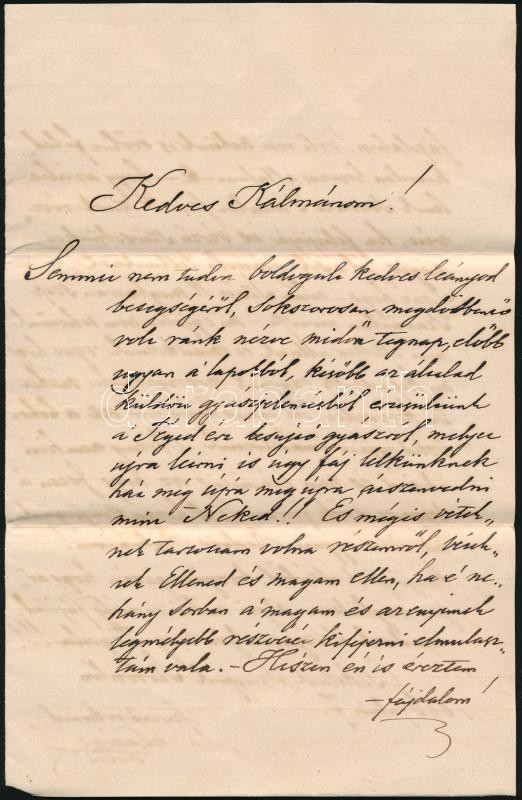 Kedves Kálmánom!
Semmit nem tudva boldogult kedves leányod
betegségéről, sokszorosan megdöbbentő
volt ránk nézve midőn tegnap, előbb
ugyan a lapokból, később az általad
küldött gyászjelentésből értesültünk
a Tégedet ért lesujtó gyászról, melyet
ujra leirni is úgy fáj lelkünknek
hát még újra meg újra átszenvedni
mint Neked!! És mégis vétek-
nek tartottam volna részemről, vétek-
nek Ellened és magam ellen, ha é né-
hány sorban á magam és az enyimek
legmélyebb részvétét kifejezni elmulasz-
tám vala. – Hiszen én is éreztem
– fájdalom!
darabanth